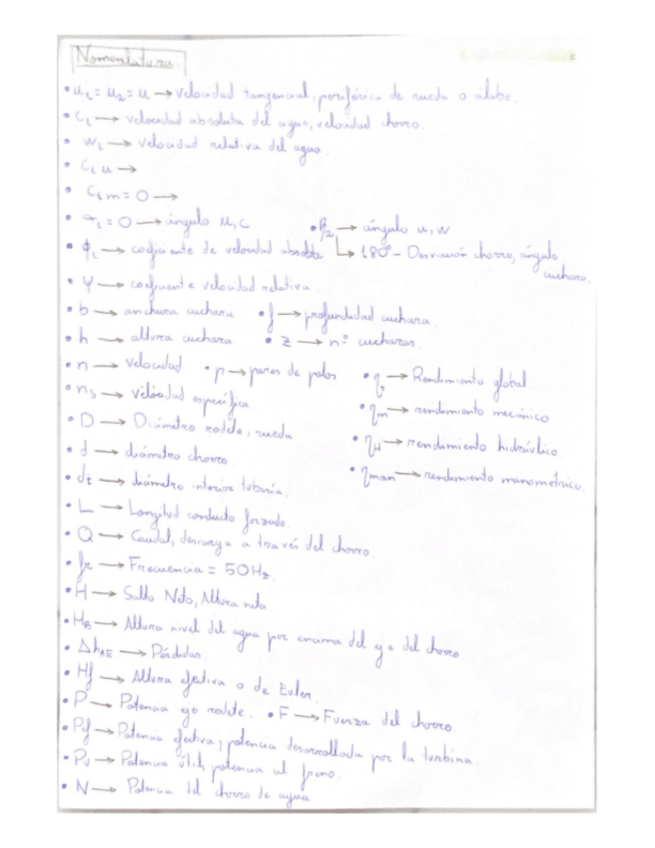 Nomenclatura
• u₁ = u₂ = u → velocidad tangencial, periférica de rueda o álabe.
• C₁ → velocidad absoluta del agua, velocidad chorro.
• W₁ → velocidad relativa del agua.
• C₁u →
• C₁m = 0 →
• α₁ = 0 → ángulo u, C • β₂ → ángulo u, W
↳ 180° - Desviación chorro, ángulo cuchara.
• ϕ₁ → coeficiente de velocidad absoluta
• ψ → coeficiente velocidad relativa.
• b → anchura cuchara • f → profundidad cuchara.
• h → altura cuchara • z → nº cucharas.
• n → velocidad • p → pares de polos • η → Rendimiento global
• ns → velocidad específica. • ηm → rendimiento mecánico
• D → Diámetro rodete, rueda • ηH → rendimiento hidráulico.
• d → diámetro chorro. • ηman → rendimiento manométrico.
• dt → diámetro interior tubería.
• L → Longitud conducto forzado.
• Q → Caudal, descarga a través del chorro.
• fr → Frecuencia = 50Hz.
• H → Salto Neto, Altura neta.
• HB → Altura nivel del agua por encima del eje del chorro
• ΔhAE → Pérdidas.
• Hf → Altura efectiva o de Euler.
• P → Potencia eje rodete. • F → Fuerza del chorro.
• Pf → Potencia efectiva, potencia desarrollada por la turbina.
• Pu → Potencia útil, potencia al freno.
• N → Potencia del chorro de agua